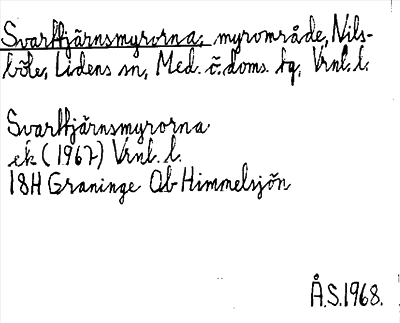 Svarttjärnsmyrorna, myrområde, Nils-
böle, Lidens sn, Med. č. doms. tg, Vrnl. l.
Svarttjärnsmyrorna
ek (1967) Vrnl. l.
18H Graninge Ob Himmelsjön
Å.S. 1968.